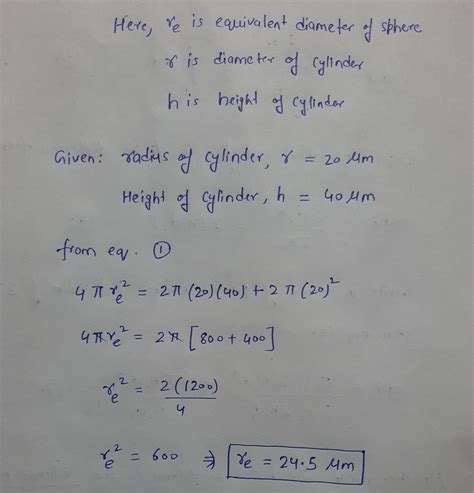 Here, re is equivalent diameter of sphere
r is diameter of cylinder
h is height of cylinder
Given: radius of cylinder, r = 20 μm
Height of cylinder, h = 40 μm
from eq. ①
4 π re² = 2π (20)(40) + 2 π (20)²
4πre² = 2π [800 + 400]
re² = 2(1200)/4
re² = 600 ⇒ re = 24.5 μm